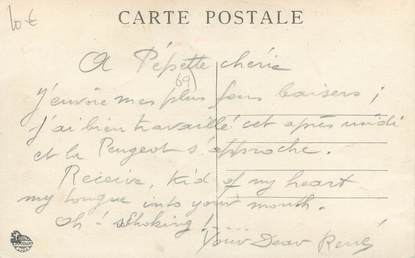 10 €
CARTE POSTALE
A Pépette chérie
69
J'envoie mes plus fous baisers ;
j'ai bien travaillé cet après midi
et la Peugeot s'approche.
Receive, kid of my heart
my tongue into your mouth.
Oh ! shoking !....
Your Dear René